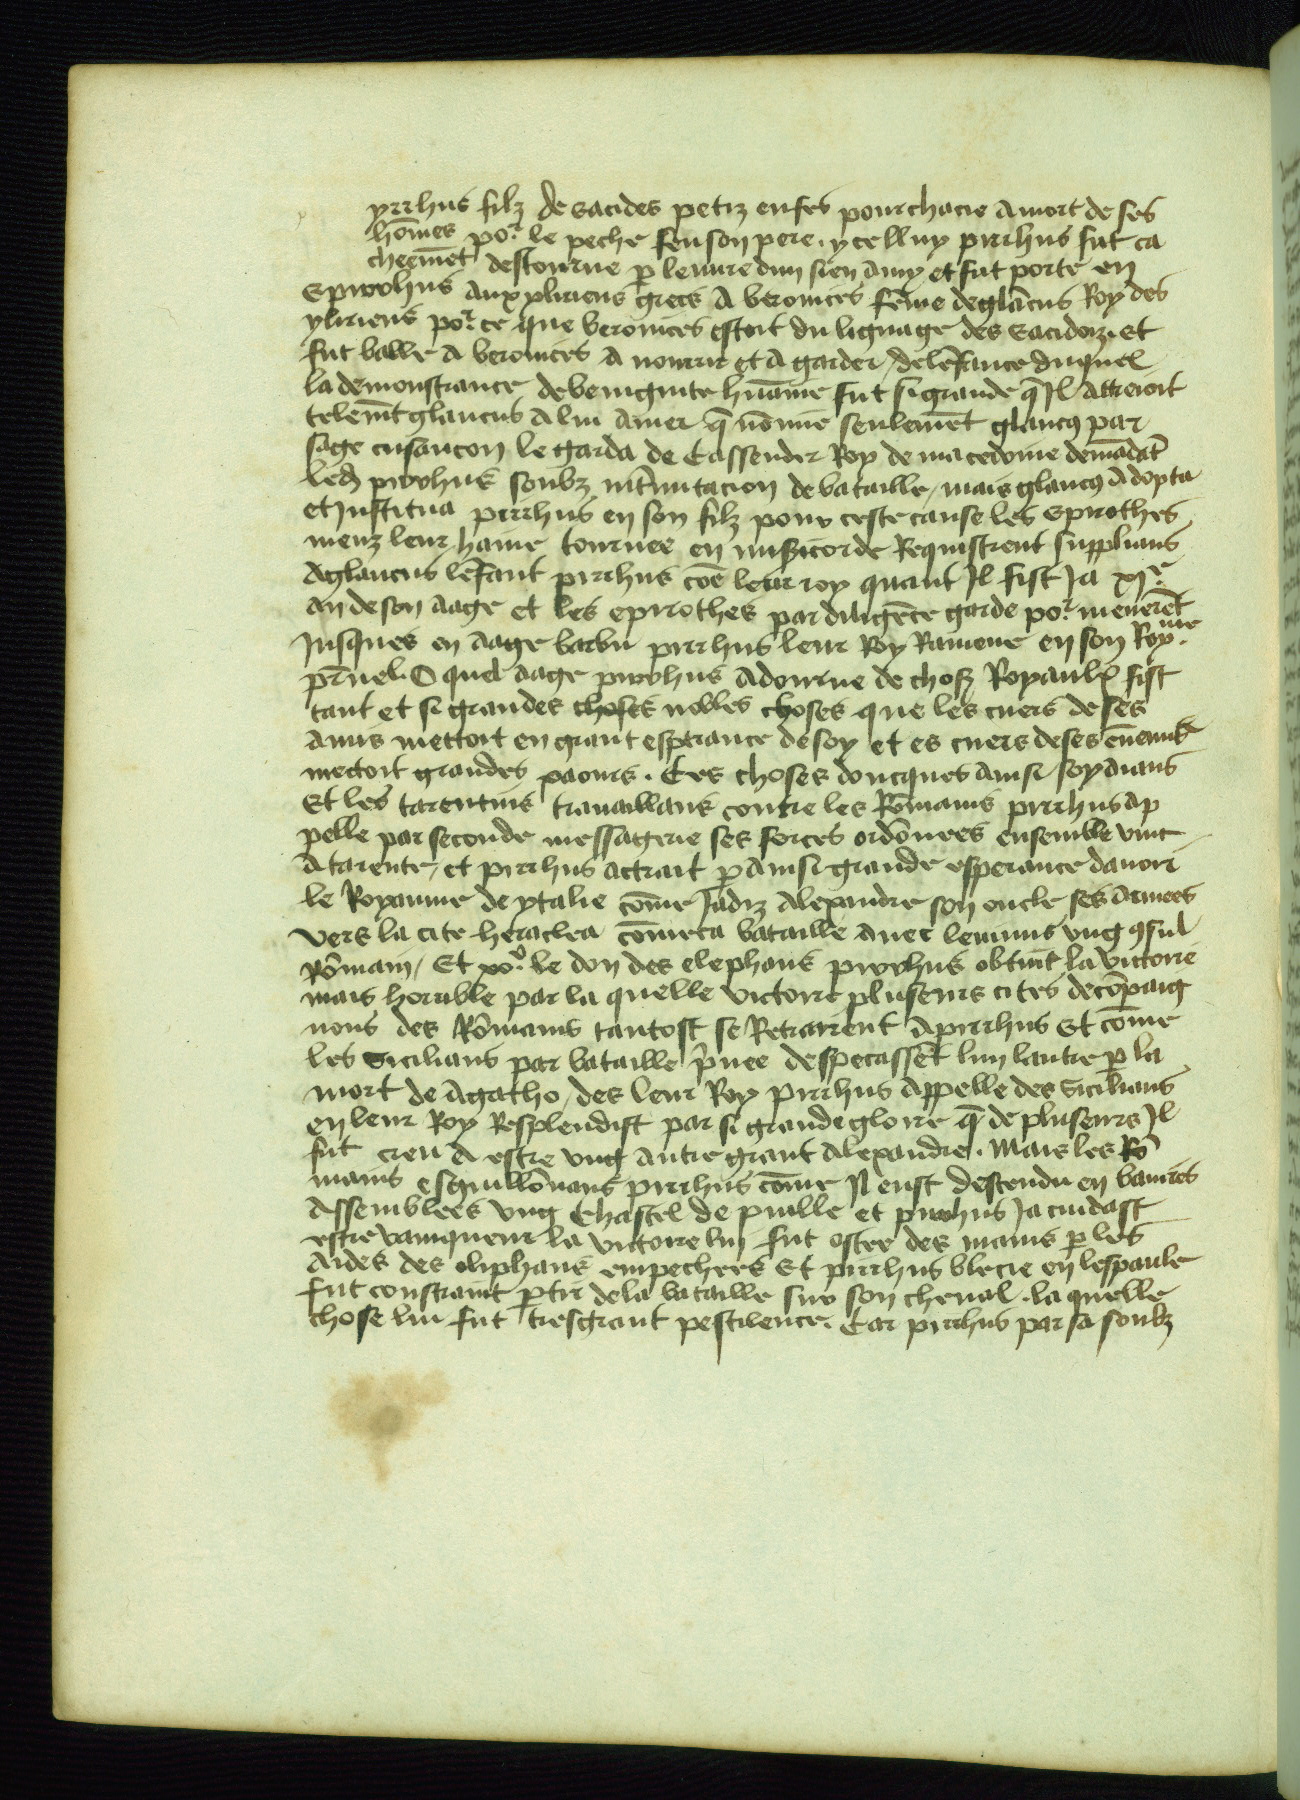 yrrhus filz de Eacides petiz enfes pourchacie a mort de ses
hōmes por le peche feu son pere. ycelluy pirrhus fut ca
cheemēt destourne p leuure dun sien amy et fut porte en
Epirohus aux yliriens grecs a beronices fēme de glācus Roy des
yliriens por ce que beronices estoit du lignage des eacidoiz. et
fut baille a beronices a nourrir et a garder / de lēfance duquel
la demonstrance de benignite hūaine fut si grande q̄ Il attreioit
telemt glancus a lui amer q̄ nōmie seulemēt glancꝰ par
sage cusancon le garda de Cassender Roy de macedoine demādāt
led pirrhus soubz intimitacion de bataille / mais glancꝰ adopta
et Institua pirrhus en son filz pour ceste cause les Epirothes
meuz leur haine tournee en misericorde Requistrent supplians
A glancus lēfant pirrhus cōe leur roy quant Il fist Ja xie
an de son aage et les epirothes par diligēce garde por menerēt
Jusques en aage barbu pirrhus leur Roy Ramene en son Royme
pr̄nel. O quel aage pirrhus adourne de chos Royaulx fist
tant et si grandes choses nobles choses que les cuers de ses
amis mettoit en grant esperance de soy et es cuers de ses ēnemis
mettoit grandes paours. Ces choses doncques ainsi soydians
Et les tarentins trauaillans contre les Rōmains pirrhus ap
pelle par seconde messagerie ses forces ordōnees ensemble vint
A tarente, et pirrhus actrait p ainsi grande esperance dauoir
le Royaume de ytalie cōme Jadiz Alexandre son oncle ses armees
vers la cite heraclea cōmeca bataille auec leuinus vng ꝯsul
Rōmain / Et por le don des elephans pirrhus obtint la victorie
mais horrible par la quelle victoire pluseurs cites de cōpaig
nons des Rōmains tantost se Retrairent a pirrhus Et cōme
les Sicilians par bataille pr̄uee despecassēt lun lautre p la
mort de Agatho / des leur Roy pirrhus Appelle des Sicilians
en leur Roy Resplendist par si grande gloire q̄ de pluseurs Il
fut creu a estre vng autre grant Alexandre. Mais les Rō
mains esguillōnans pirrhus cōme Il eust descendu en banieres
Assemblees vng Chastel de puille et pirrhus Ja cuidast
estre vainqueur la victoire lui fut ostee des mains p les
Aides des oliphans empechees Et pirrhus blecie en lespaule
fut constraint ptir de la bataille sur son cheual. la quelle
chose lui fut tresgrant pestilence. Car pirrhus par sa soubz